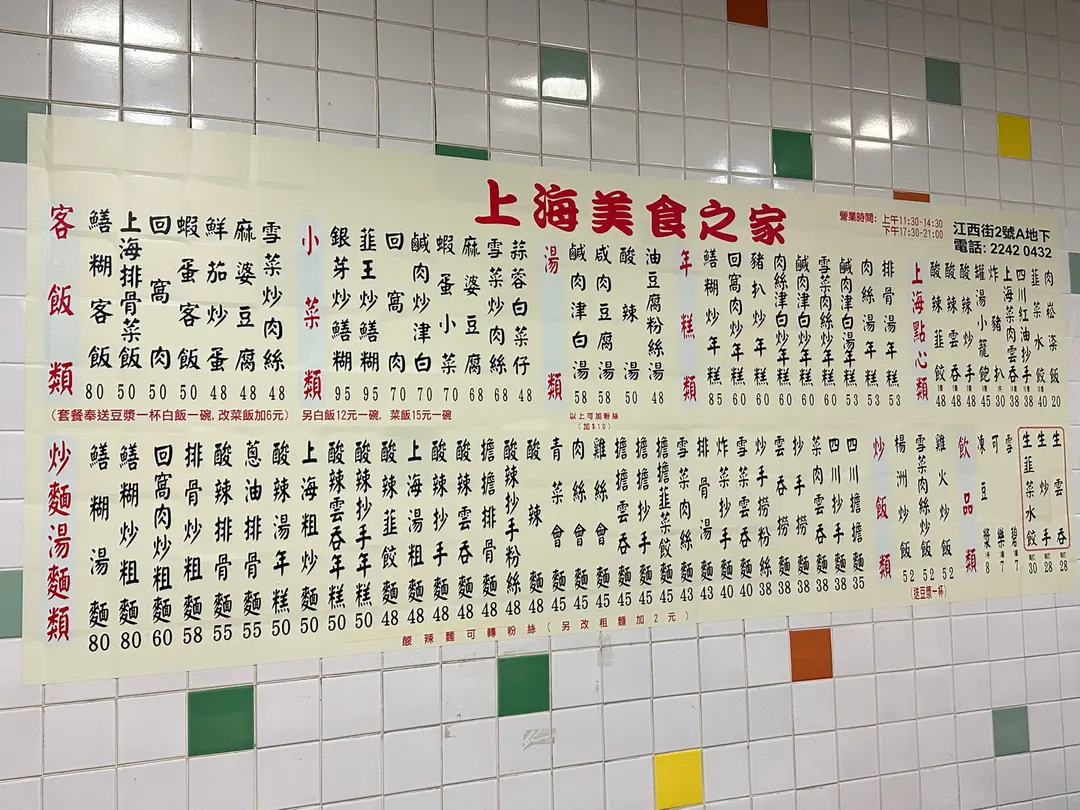 上海美食之家
營業時間: 上午11:30-14:30
下午17:30-21:00
江西街2號A地下
電話: 2242 0432
客飯類
鱔糊客飯 80
上海排骨菜飯 50
回窩肉 50
蝦蛋客飯 50
鮮茄炒蛋 48
麻婆豆腐 48
雪菜炒肉絲 48
(套餐奉送豆漿一杯白飯一碗, 改菜飯加6元)
小菜類
銀芽炒鱔糊 95
韮王炒鱔糊 95
回窩肉 70
鹹肉炒津白 70
蝦蛋小菜 70
麻婆豆腐 68
雪菜炒肉絲 68
蒜蓉白菜仔 48
另白飯12元一碗, 菜飯15元一碗
湯類
鹹肉津白湯 58
咸肉豆腐湯 58
酸辣湯 50
油豆腐粉絲湯 48
以上可加粉絲
(加$10)
年糕類
鱔糊炒年糕 85
回窩肉炒年糕 60
豬扒炒年糕 60
肉絲津白炒年糕 60
鹹肉津白炒年糕 60
雪菜肉絲炒年糕 60
鹹肉津白湯年糕 53
肉絲湯年糕 53
排骨湯年糕 53
上海點心類
酸辣韮餃 48
酸辣雲吞 48
酸辣炒手 48
罐湯小籠飽 45
炸豬扒 30
上海菜肉雲吞 38
四川紅油抄手 38
韮菜水餃 40
肉崧粢飯 20
炒麵湯麵類
鱔糊湯麵 80
鱔糊炒粗麵 80
回窩肉炒粗麵 60
排骨炒粗麵 58
酸辣排骨麵 55
蔥油排骨麵 55
酸辣湯年糕 50
上海粗炒麵 50
酸辣雲吞年糕 50
酸辣抄手年糕 50
酸辣韮餃麵 48
上海湯粗麵 48
酸辣抄手麵 48
酸辣雲吞麵 48
擔擔排骨麵 48
酸辣抄手粉絲 48
酸辣麵 48
青菜會麵 45
肉絲會麵 45
雞絲會麵 45
擔擔雲吞麵 45
擔擔抄手麵 45
擔擔韮菜餃麵 45
雪菜肉絲麵 43
排骨湯麵 43
炸菜肉絲麵 40
雪菜抄手麵 40
炒手撈粉絲 38
雲吞撈麵 38
抄手撈麵 38
菜肉雲吞麵 38
四川抄手麵 38
四川擔擔麵 35
酸辣麵可轉粉絲(另改粗麵加2元)
炒飯類
楊洲炒飯 52
雪菜肉絲炒飯 52
雞火炒飯 52
(送豆漿一杯)
飲品類
凍豆漿 8
可樂 7
雪碧 7
生韮菜水餃 30
生炒手 28
生雲吞 28